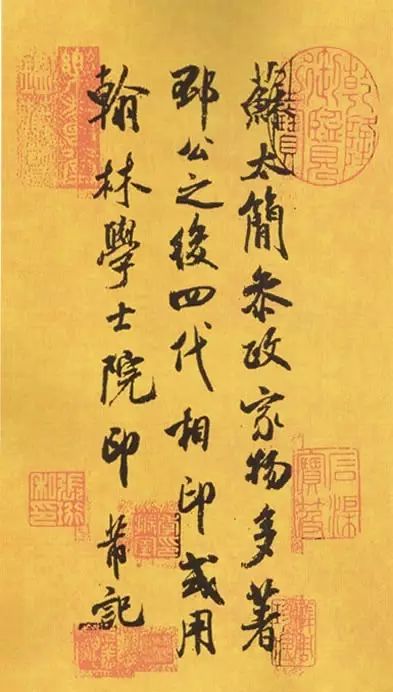 蘇太簡叅政家物多著
邳公之後四代相印或用
翰林學士院印芾記
張珩私印